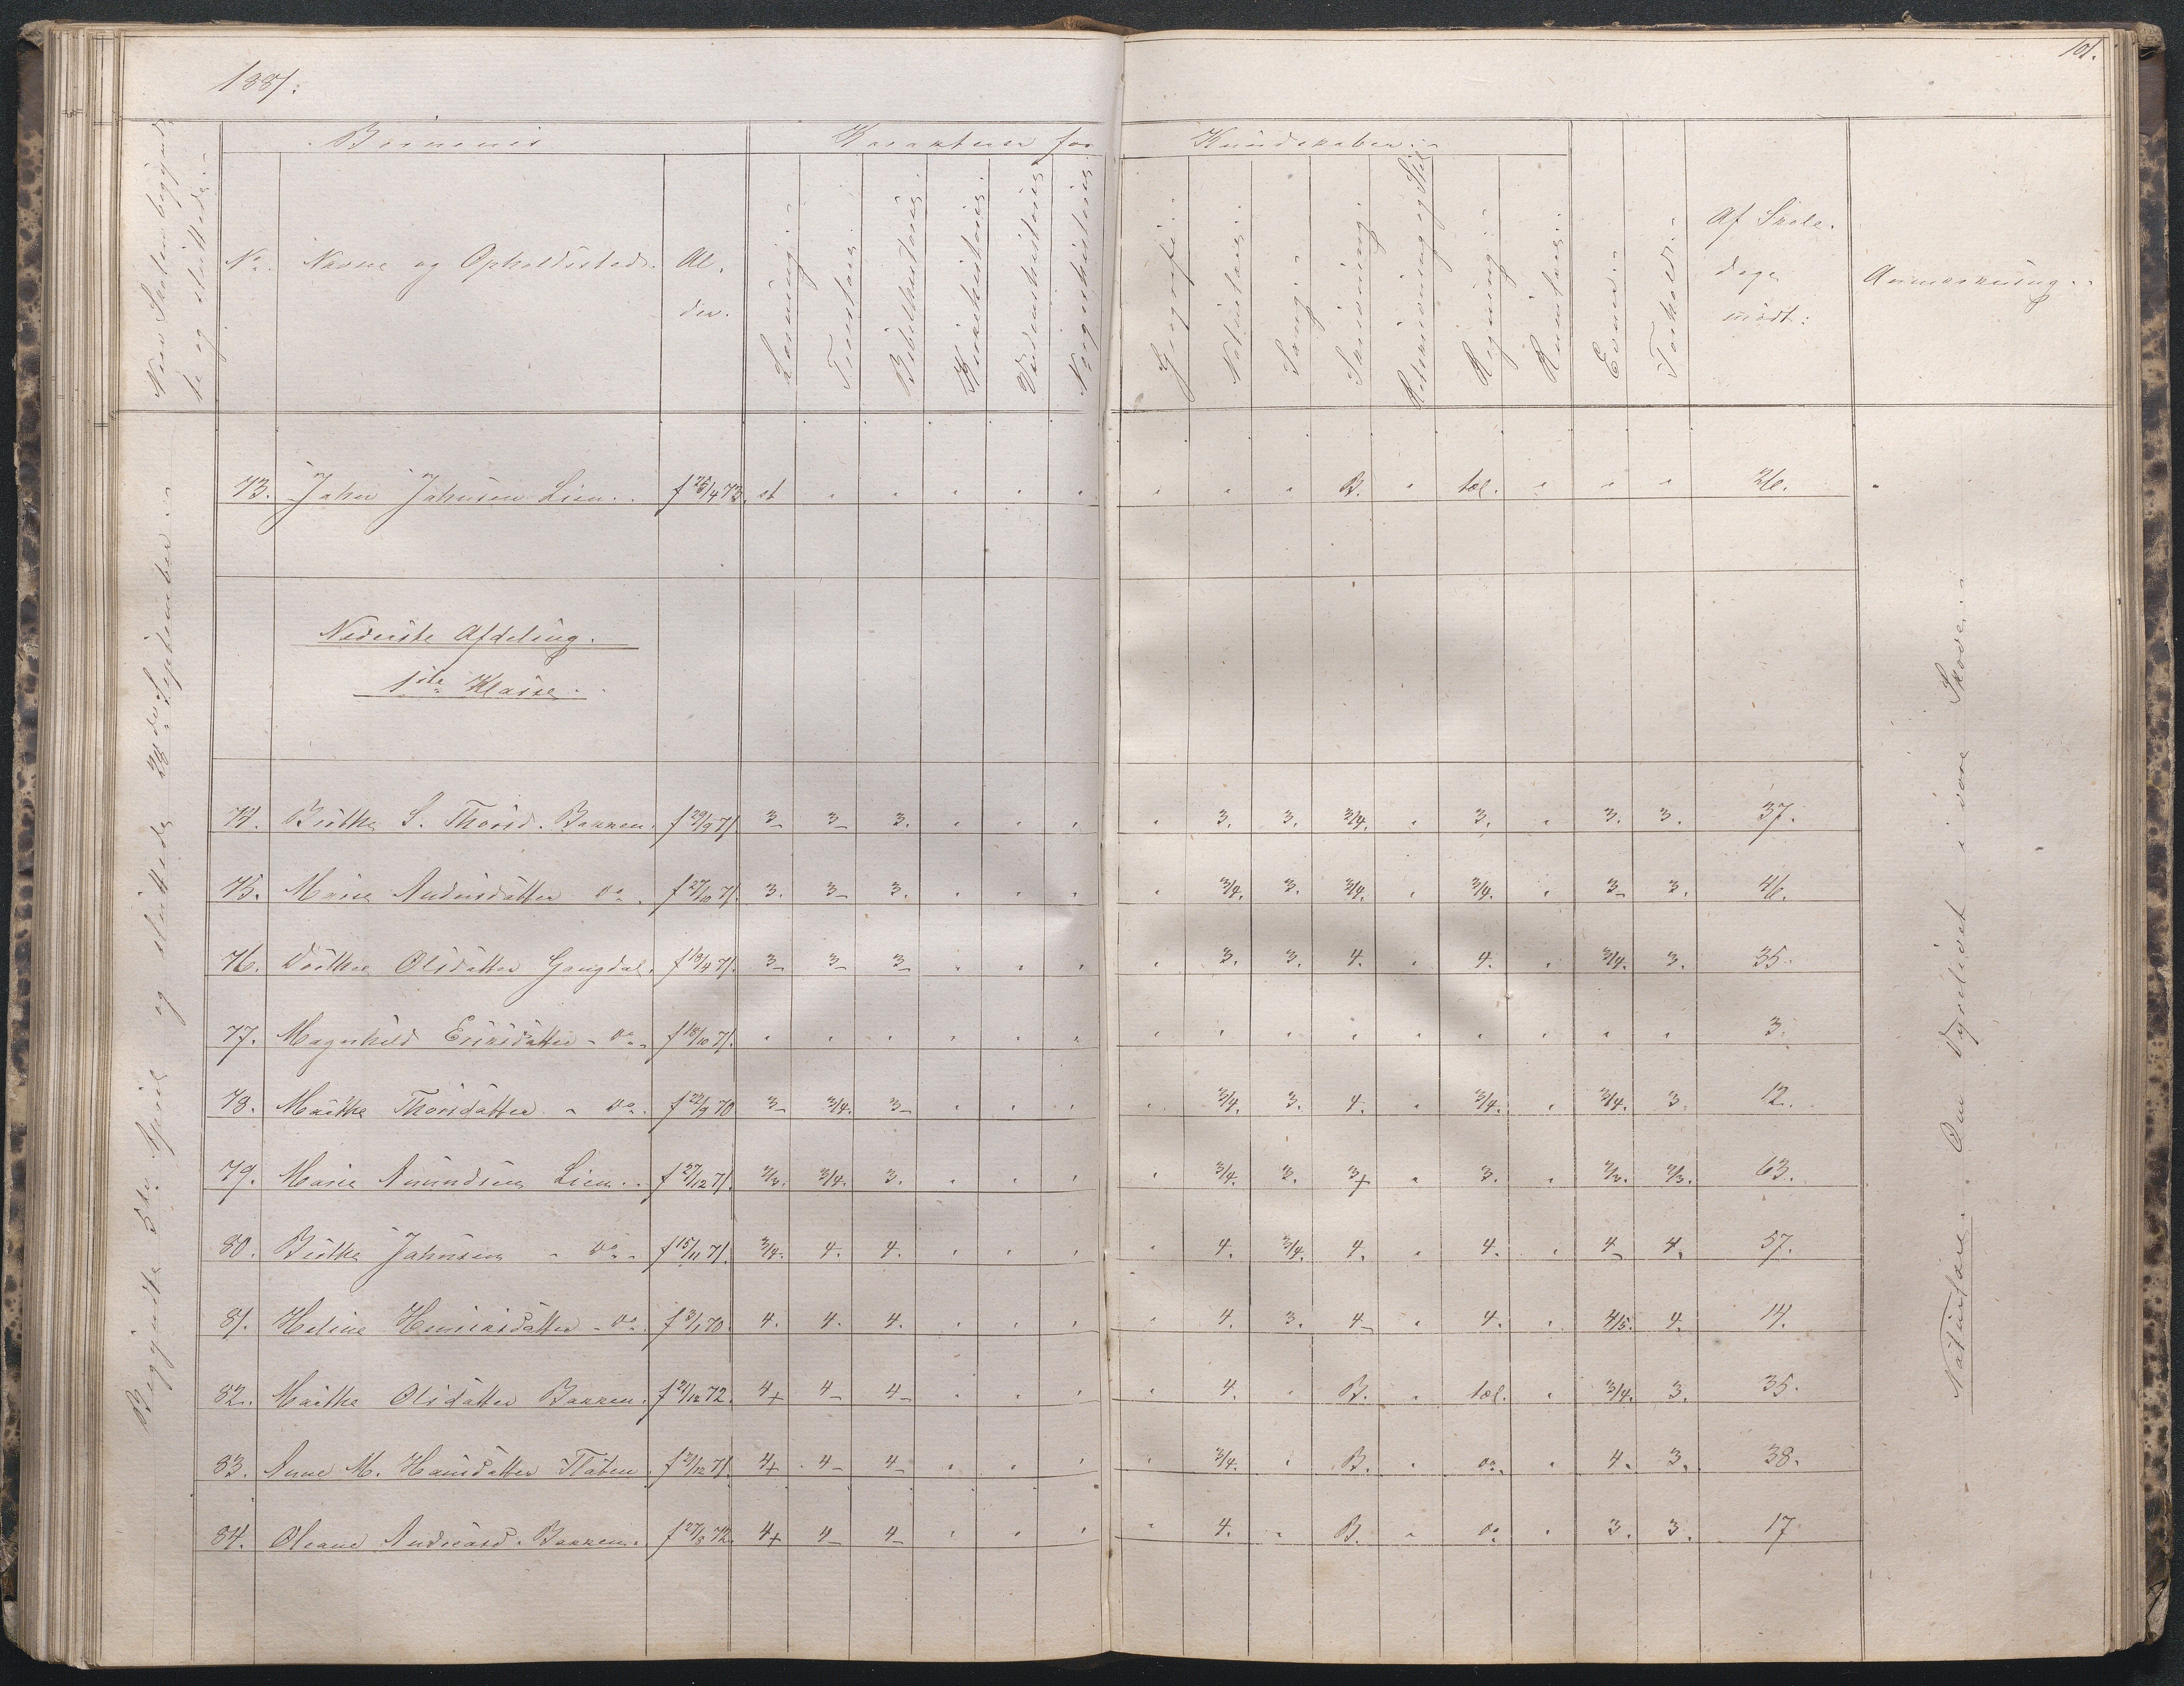 1881.
101.
Naar Skolen begynd-
te og sluttede.
Børnenes
Karakterer for
Kundskaber.
No. Navne og Opholdssted. Al-
der.
Læsning. Troeslære. Bibelhistorie. Kirkehistorie. Verdenshistorie. Norgeshistorie. Geografi. Naturlære. Sang. Skrivning. Retskrivning og Stil Regning. Evner. Forhold. Af Skole-
dage
mødt:
Anmærkning.
73. Jahn Jahnsen Lien. f 25/4 73. st " " " " " " " " B. " tæl. " " " 26.
Nederste Afdeling.
1ste Klasse.
74. Birthe S. Thorsd. Bakken. f 29/9 71 3- 3- 3. " " " " 3. 3. 3/4. " 3. " 3. 3. 37.
75. Marie Andersdatter do. f 27/10 71. 3. 3- 3. " " " " 3/4. 3. 3/4. " 3/4. " 3- 3. 46.
76. Dorthea Olsdatter Gangdal. f 19/4 71. 3- 3- 3- " " " " 3. 3. 4. " 4. " 3/4. 3. 35.
77. Magnhild Eriksdatter - do. f 18/10 71. " " " " " " " " " " " " " " " 3.
78. Marthe Thorsdatter - do. f 22/9 70 3- 3/4. 3- " " " " 3/4. 3. 4. " 3/4. " 3/4. 3. 12.
79. Marie Amundsen Lien. f 27/12 71. 2/3. 3/4. 3. " " " " 3/4. 3. 3+ " 3. " 2/3. 2/3. 63.
80. Birthe Jahnsen - do. f 15/11 71. 3/4. 4. 4. " " " " 4. 3/4. 4. " 4. " 4- 4. 57.
81. Heline Henriksdatter - do. f 3/1 70. 4. 4. 4. " " " " 4. 3. 4- " 4. " 4/5. 4. 14.
82. Marthe Olsdatter Bakken. f 2/12 72. 4+ 4- 4- " " " " 4. " B. " tæl. " 3/4. 3. 35.
83. Anne M. Hansdatter Flaten. f 2/12 71. 4+ 4- 4- " " " " 3/4. " B. " do. " 4. 3. 38.
84. Oleane Andreasd. Bakken. f 27/2 72. 4+ 4- 4- " " " " 4. " B. " do " 3. 3. 17
Begyndte 5te April og sluttede 28de September.
Naturlære. Om Dyrelivet i vore Skove.